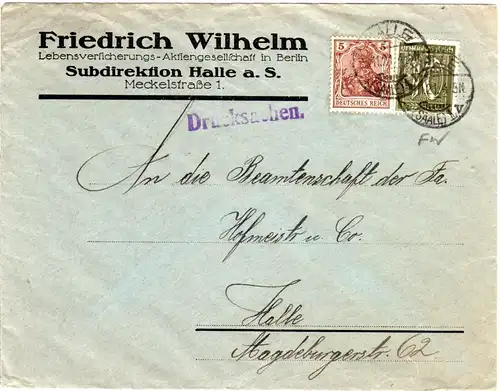 Friedrich Wilhelm
Lebensversicherungs-Aktiengesellschaft in Berlin
Subdirektion Halle a. S.
Meckelstraße 1.
Drucksachen.
5 5
DEUTSCHES REICH
HALLE
(SAALE)
FW
An die Beamtenschaft der Fa.
Hofmeistr u. Co.
Halle
Magdeburgerstr. 62